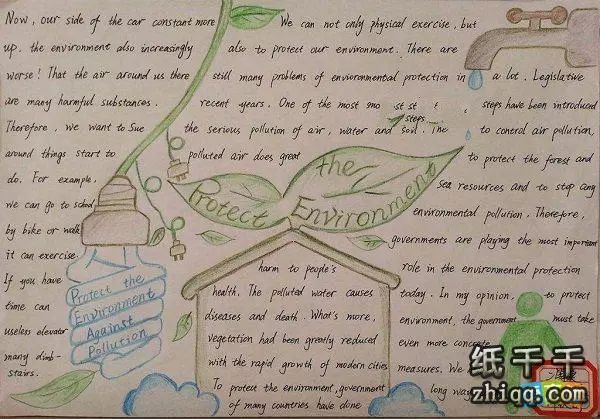 Now, our side of the car constant more
up. the environment also increasingly
worse! That the air around us there
are many harmful substances.
Therefore, we want to Sue
around things start to
do. For example,
we can go to school
by bike or walk
it can exercise.
If you have
time can
useless elevator
many climb-
stairs.
Protect the
Environment
Against
Pollution
Protect the Environment
We can not only physical exercise, but
also to protect our environment. There are
still many problems of envioronmental protection in
recent years. One of the most
the serious pollution of air, water and soil. The
polluted air does great
harm to people's
health. The polluted water causes
diseases and death. What's more,
vegetation had been greatly reduced
with the rapid growth of modern cities
To protect the environment, government
of many countries have done
a lot. Legislative
steps have been introduced
steps
to control air pollution,
to protect the forest and
sea resources and to stop any
environmental pollution. Therefore,
governments are playing the most important
role in the environmental protection
today. In my opinion, to protect
environment, the government must take
even more concrete
measures. We
long way
纸千千
zhiqq.com